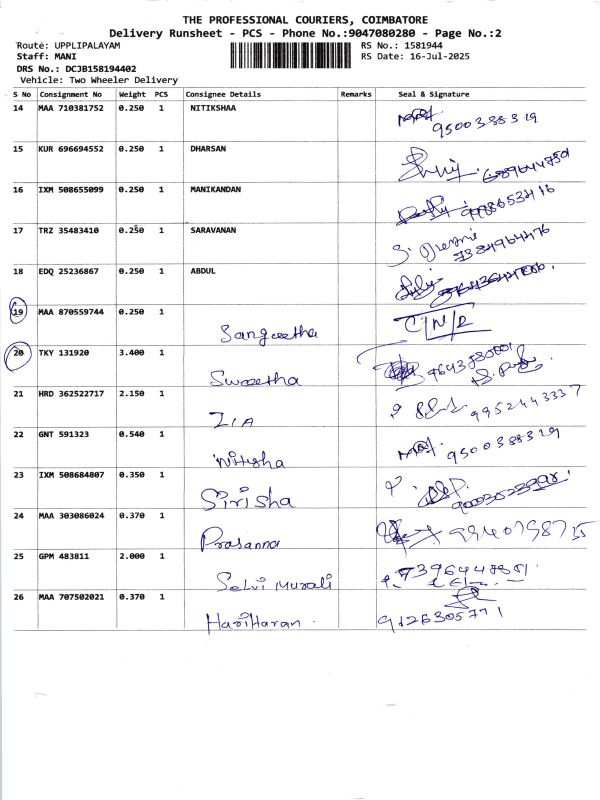 THE PROFESSIONAL COURIERS, COIMBATORE
Delivery Runsheet - PCS - Phone No.:9047080280 - Page No.:2
Route: UPPLIPALAYAM RS No.: 1581944
Staff: MANI RS Date: 16-Jul-2025
DRS No.: DCJB158194402
Vehicle: Two Wheeler Delivery
S No Consignment No Weight PCS Consignee Details Remarks Seal & Signature
14 MAA 710381752 0.250 1 NITIKSHAA
9500388319
15 KUR 696694552 0.250 1 DHARSAN
16 IXM 508655099 0.250 1 MANIKANDAN
17 TRZ 35483410 0.250 1 SARAVANAN
18 EDQ 25236867 0.250 1 ABDUL
19 MAA 870559744 0.250 1
Sangeetha C/N/R
20 TKY 131920 3.400 1
Swaetha
21 HRD 362522717 2.150 1
ZIA 9952443337
22 GNT 591323 0.540 1
Nitisha 9500388319
23 IXM 508684807 0.350 1
Sirisha
24 MAA 303086024 0.370 1
Prasanna
25 GPM 483811 2.000 1
Selvi Murali
26 MAA 707502021 0.370 1
HariHaran. 9126305771